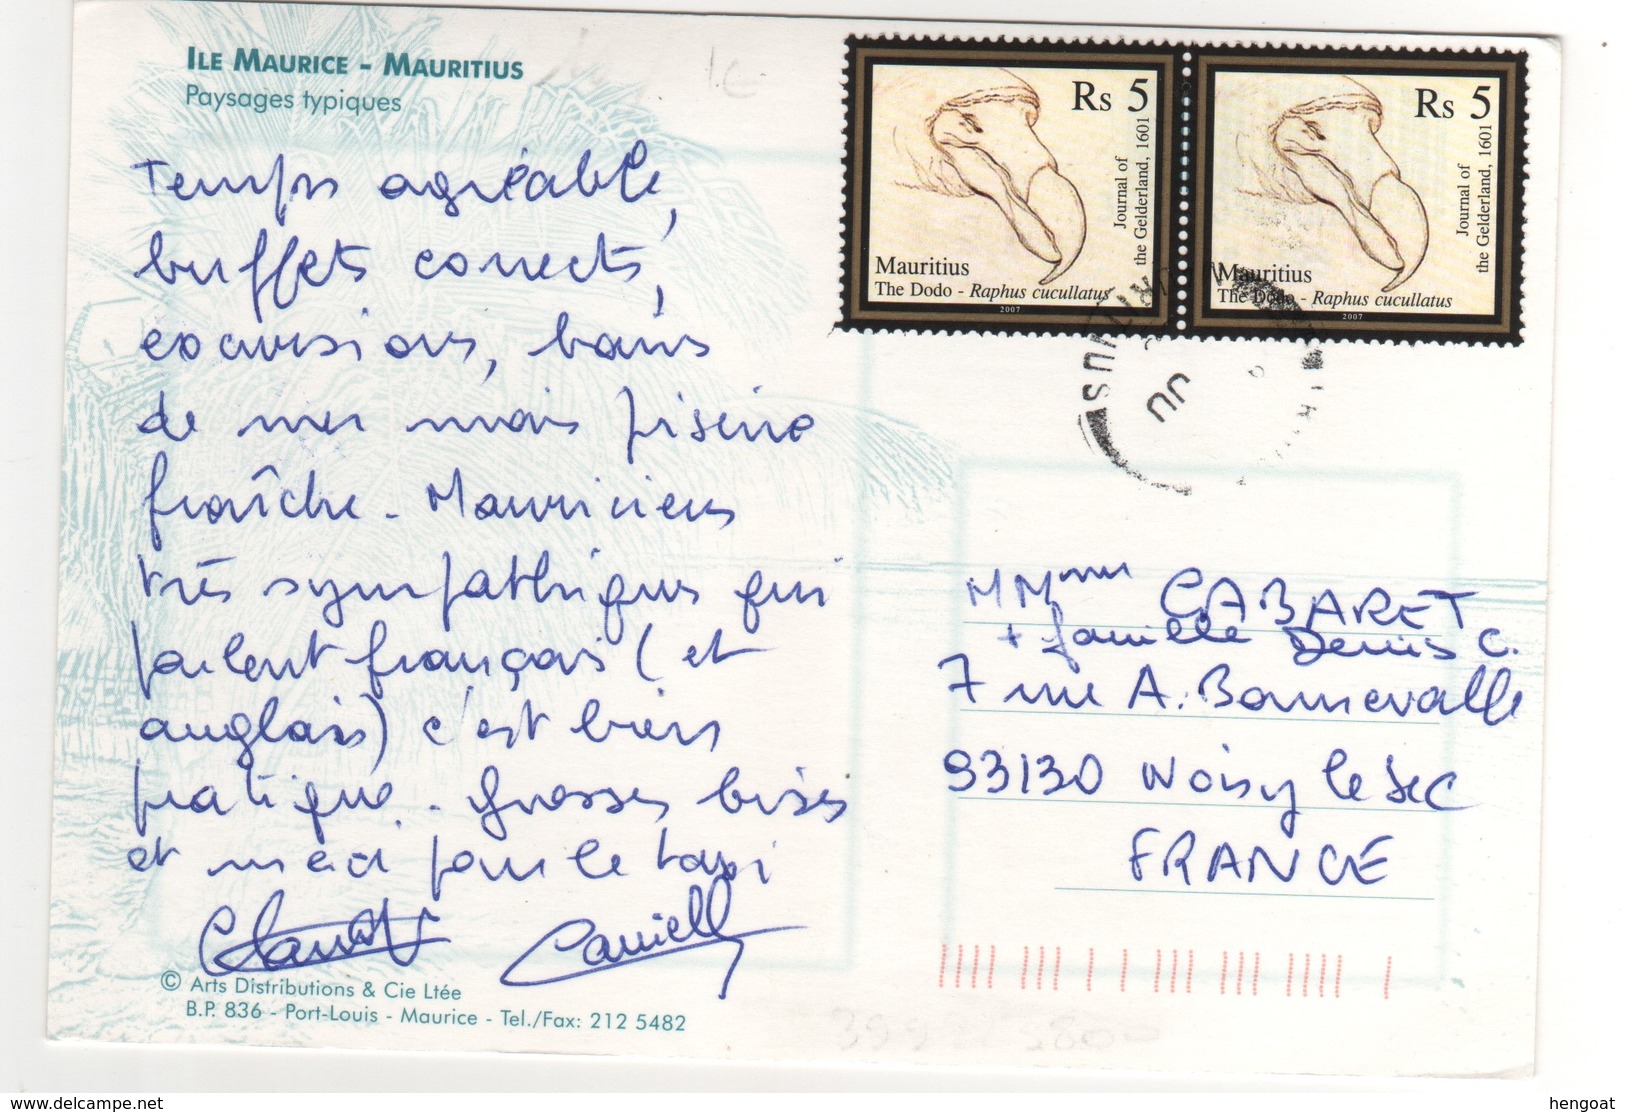 ILE MAURICE - MAURITIUS
Paysages typiques
Temps agréable,
buffets corrects,
excursions, bains
de mer mais piscine
fraîche - Mauriciens
très sympathiques qui
parlent français (et
anglais) c'est bien
pratique - grosses bises
et merci pour le taxi
Danielle
© Arts Distributions & Cie Ltée
B.P. 836 - Port-Louis - Maurice - Tel./Fax: 212 5482
Rs 5
Journal of
the Gelderland, 1601
Mauritius
The Dodo - Raphus cucullatus
2007
Rs 5
Journal of
the Gelderland, 1601
Mauritius
The Dodo - Raphus cucullatus
2007
CABARET
+ famille Denis C.
7 rue A. Bonnevalle
93130 Noisy le Sec
FRANCE
www.delcampe.net
hengoat